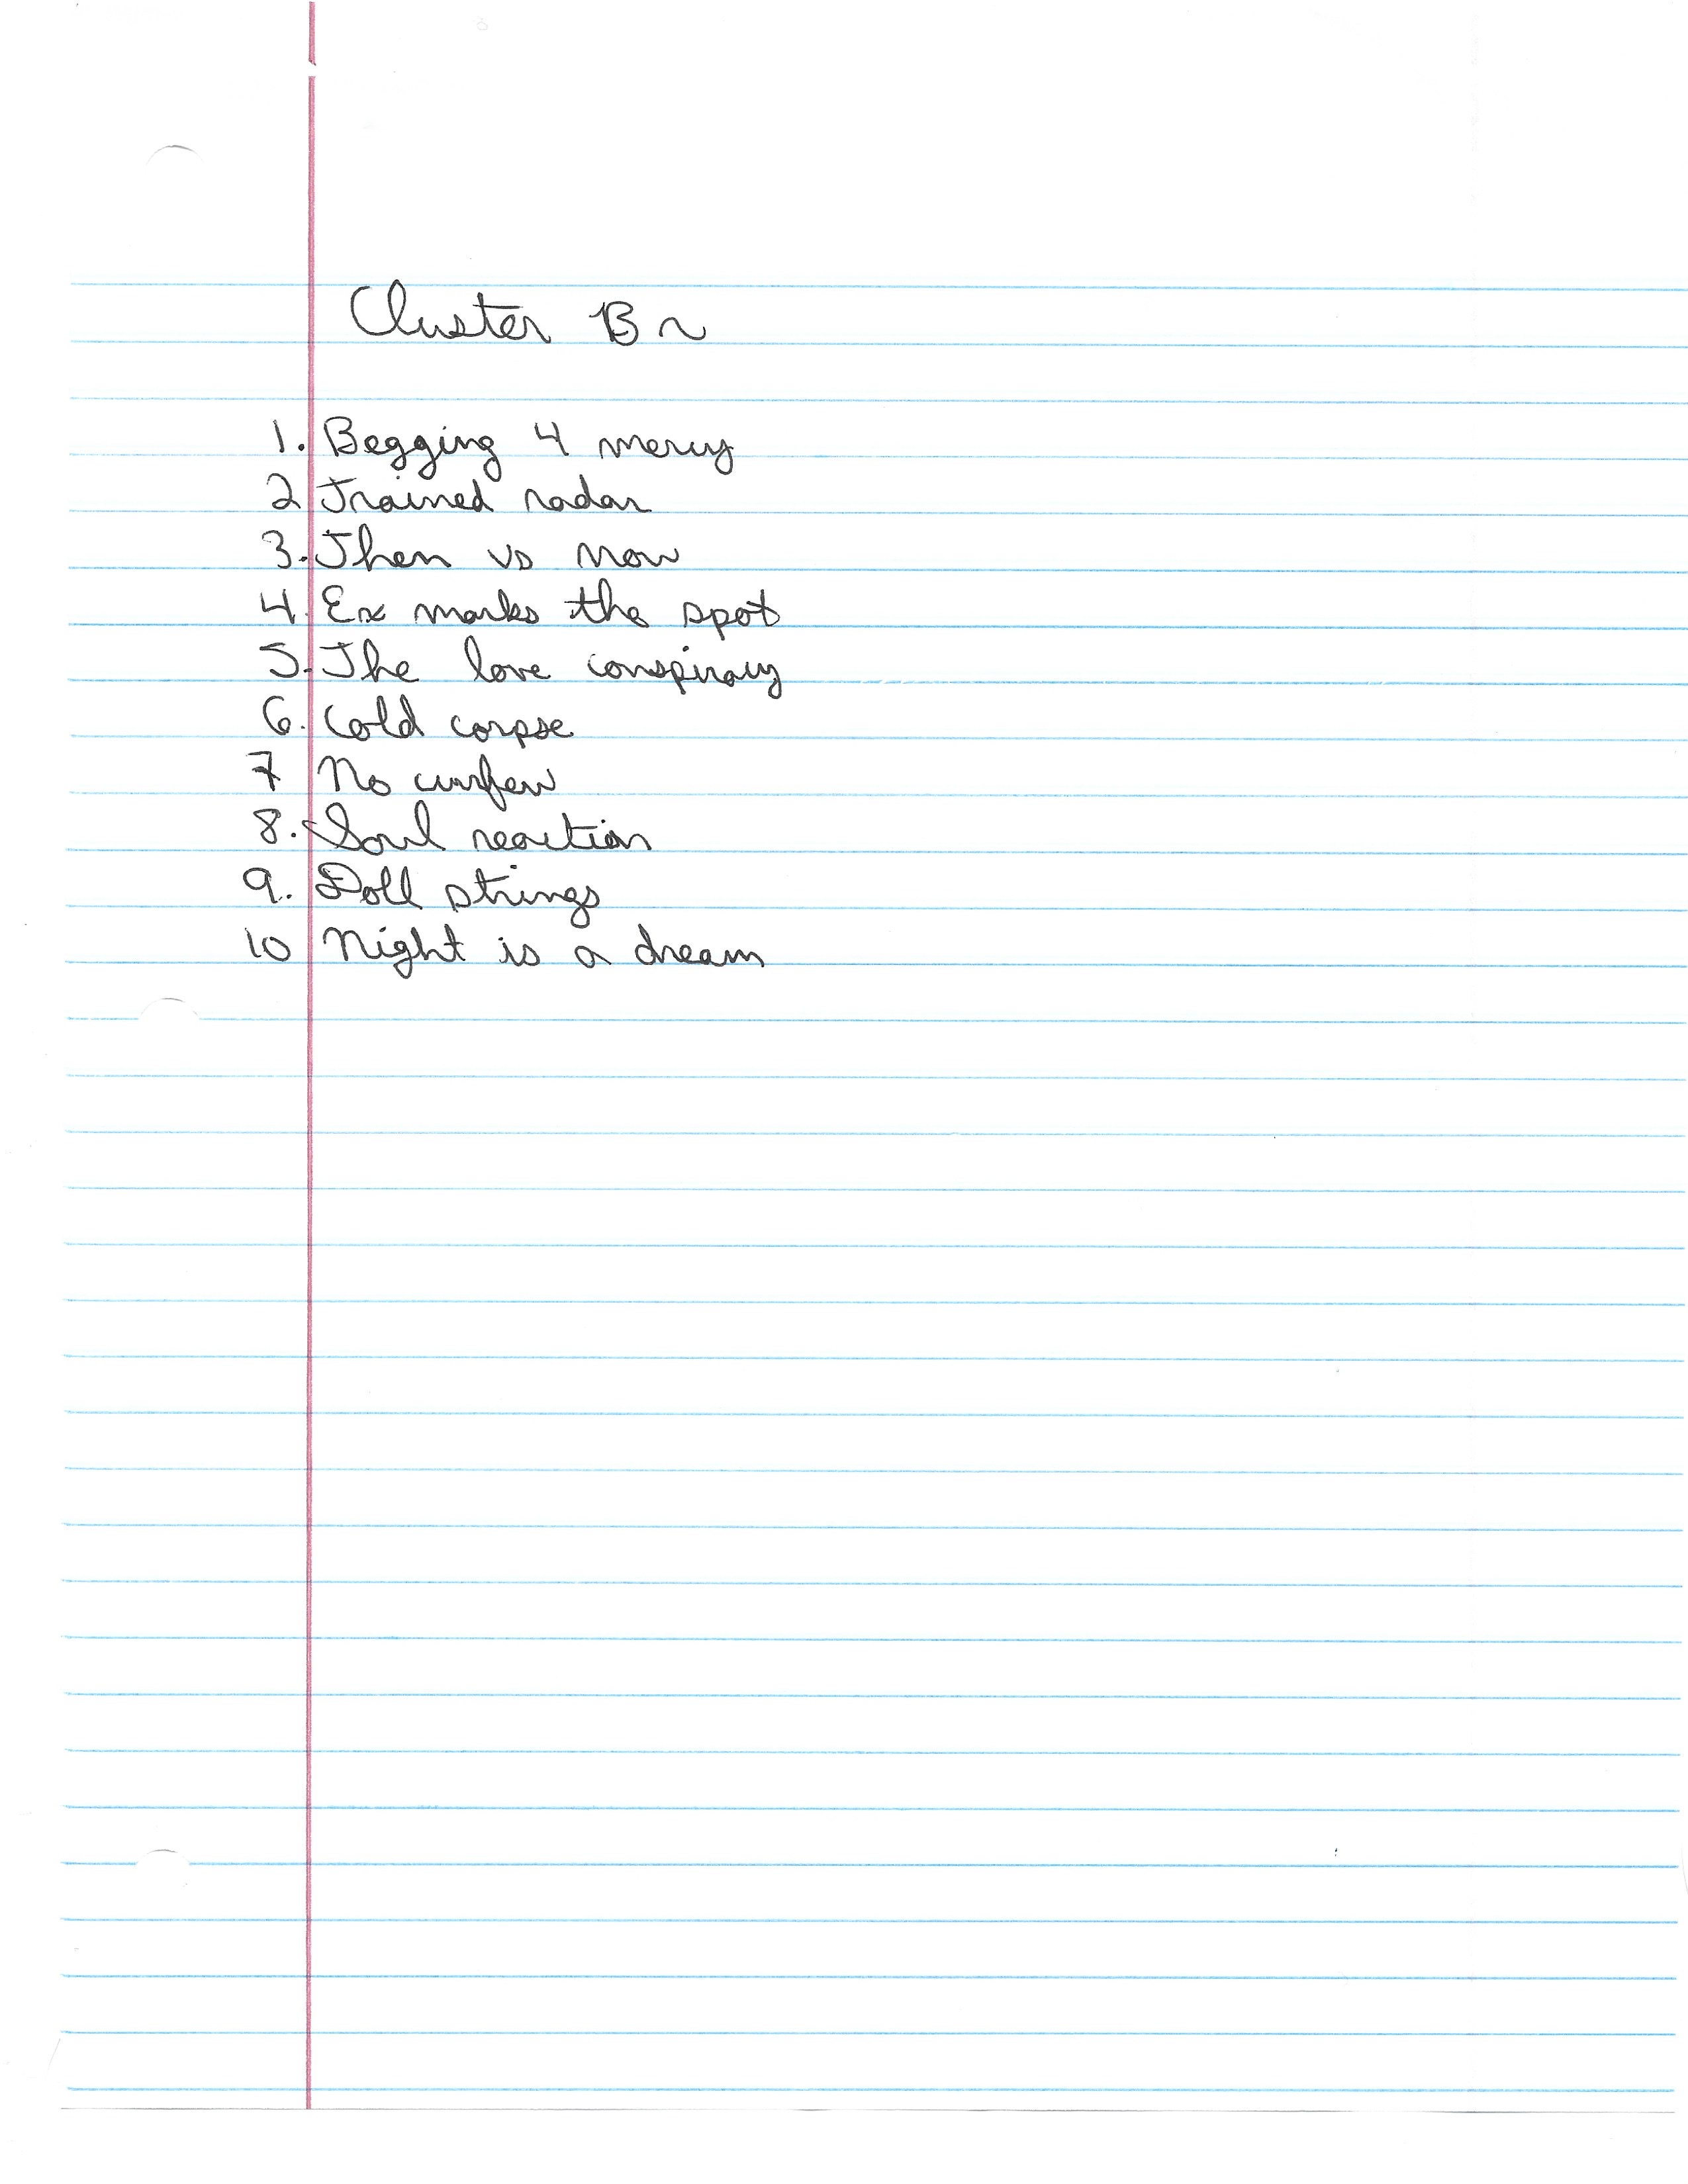 Cluster B ~
1. Begging 4 mercy
2 Trained radar
3. Then vs now
4. Ex marks the spot
5. The love conspiracy
6. Cold corpse
7 No curfew
8. Soul reaction
9. Doll strings
10 Night is a dream